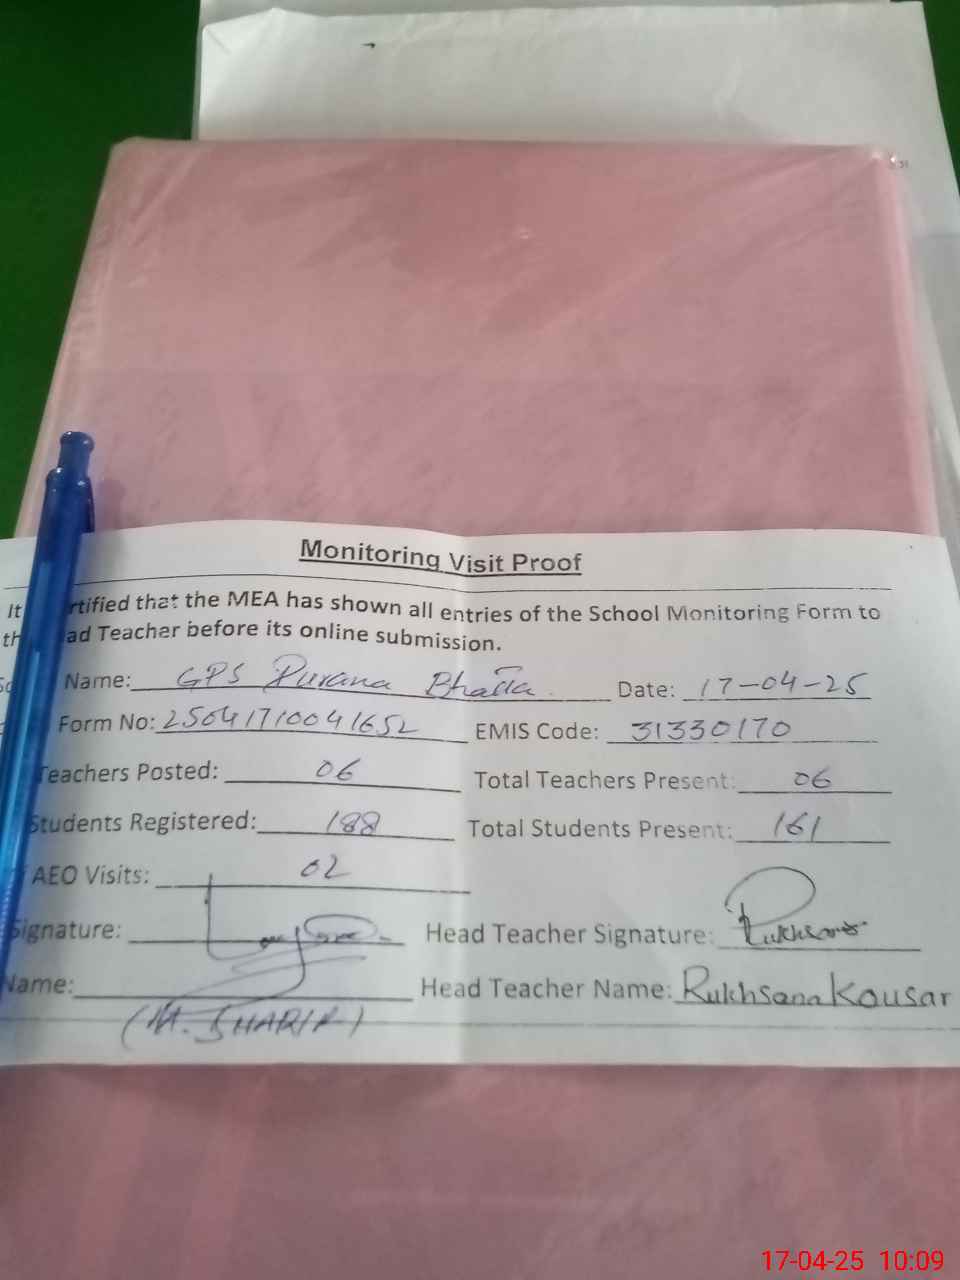 Monitoring Visit Proof
It rtified that the MEA has shown all entries of the School Monitoring Form to
th ad Teacher before its online submission.
Name: GPS Purana Bhatta Date: 17-04-25
Form No: 25041710041652 EMIS Code: 31330170
Teachers Posted: 06 Total Teachers Present: 06
Students Registered: 188 Total Students Present: 161
AEO Visits: 02
Signature: Head Teacher Signature: Rukhsana
Name: Head Teacher Name: Rukhsana Kousar
(M. SHARIF)
17-04-25 10:09